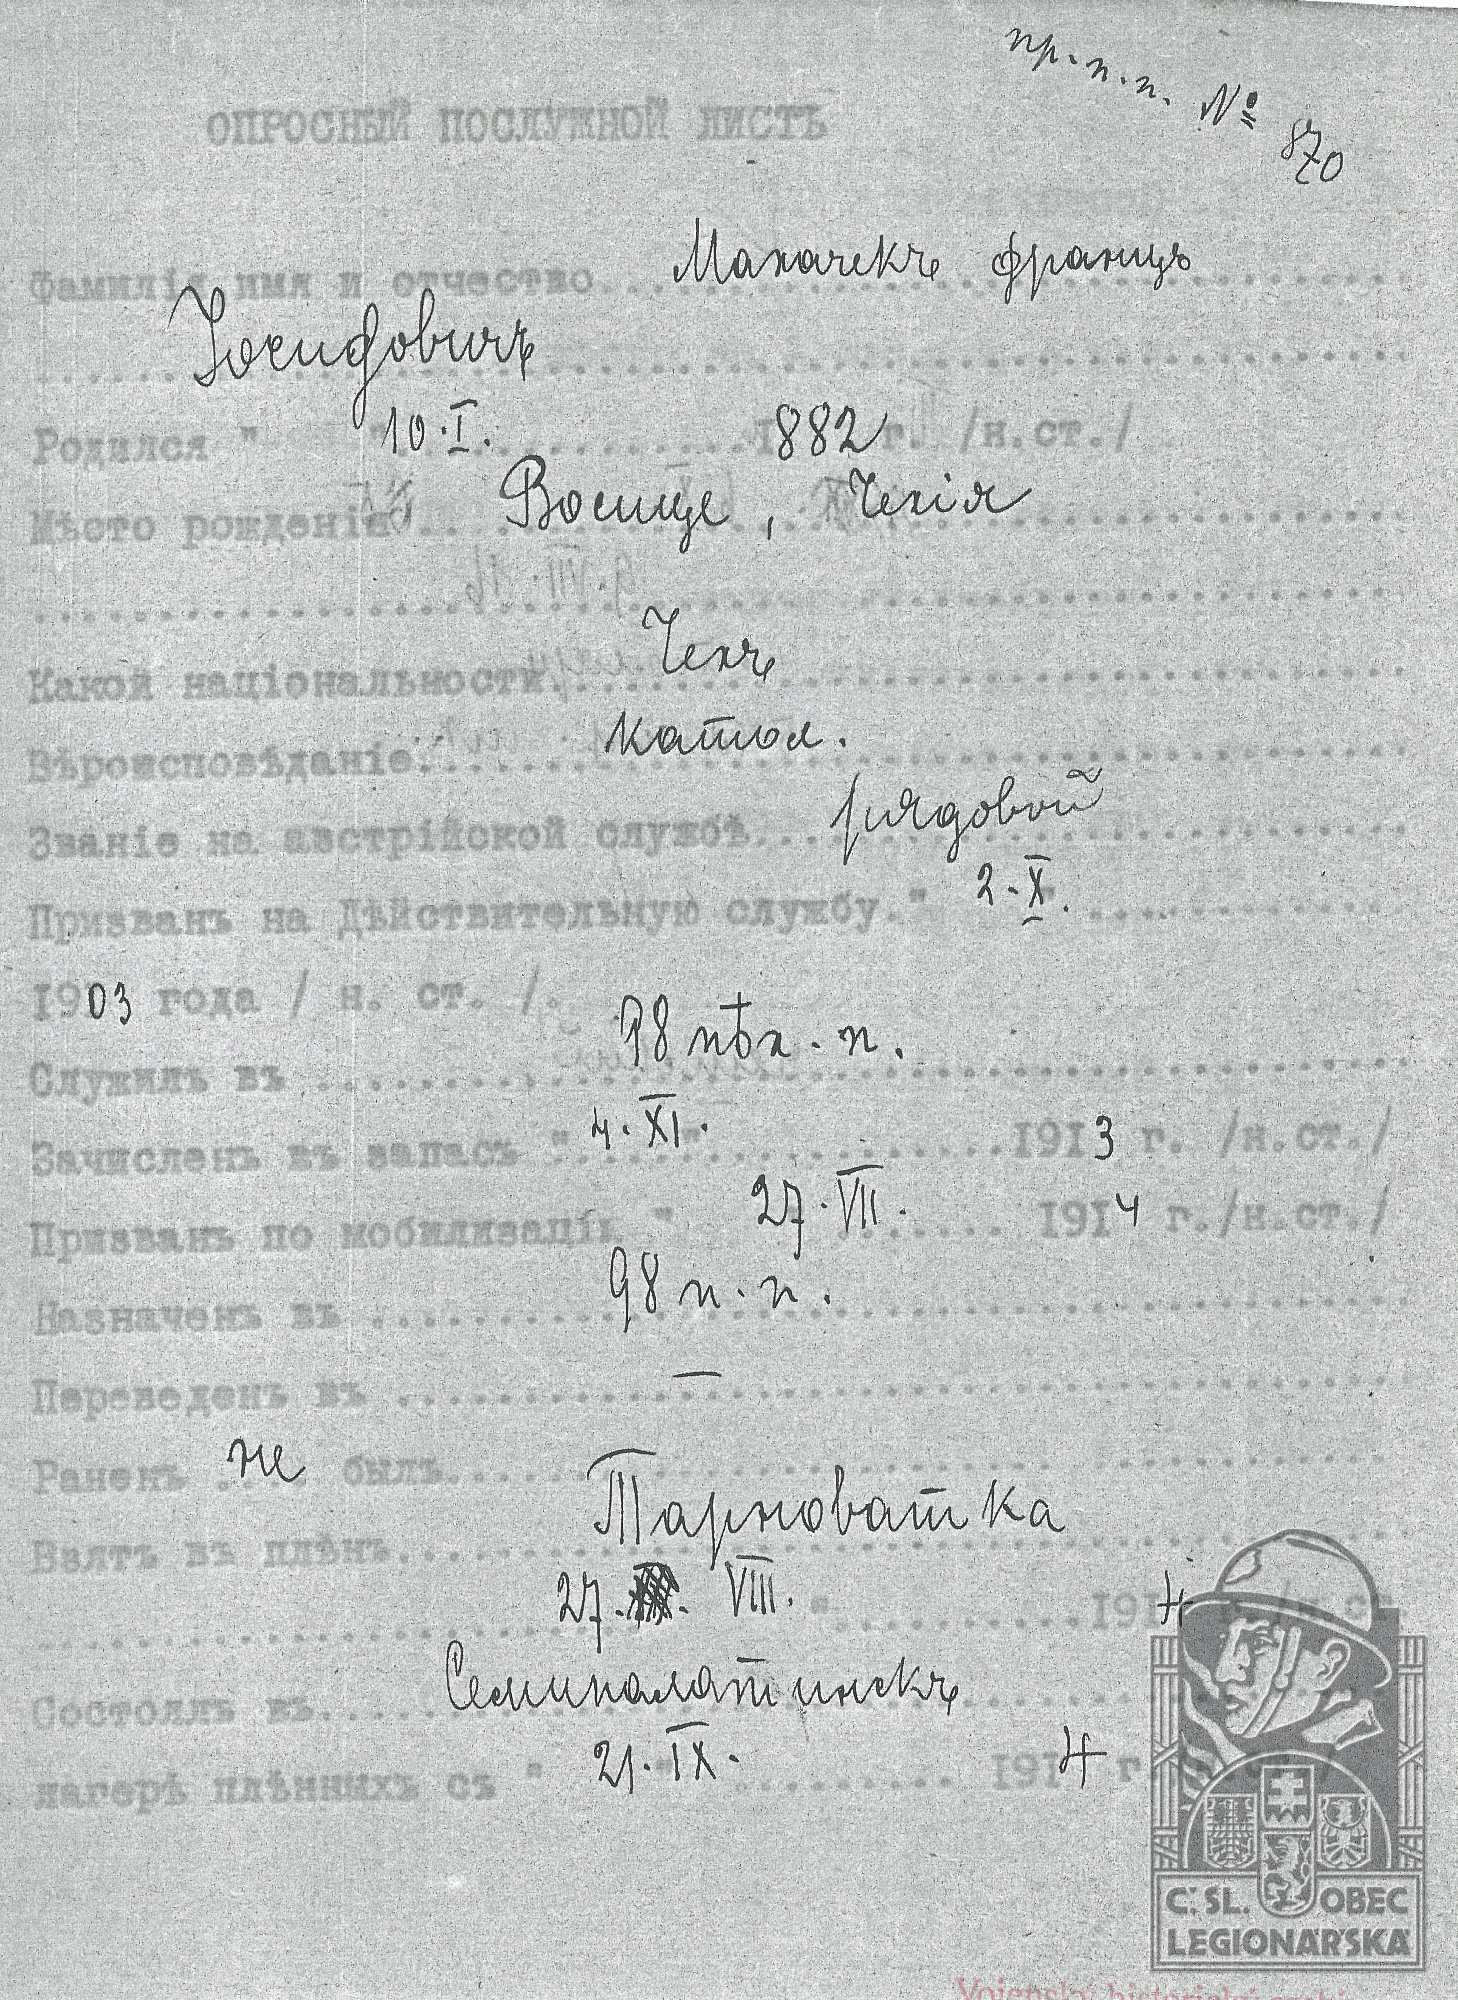 пр. п. п. № 870
ОПРОСНЫЙ ПОСЛУЖНОЙ ЛИСТЪ
Фамилія имя и отчество Махачекъ Францъ
Іосифовичъ
Родился " 10. I. 1882 г. /н.ст./
Мѣсто рожденія Восице, Чехія
9. VIII. 16
Какой національности Чехъ
Вѣроисповѣданіе катол.
Званіе на австрійской службѣ рядовой
Призванъ на Дѣйствительную службу. " 2. X.
1903 года / н. ст. /.
Служилъ въ 98 пѣх. п.
Зачисленъ въ запасъ " 4. XI. " 1913 г. /н.ст/
Призванъ по мобилизаціи " 27. VII. 1914 г./н.ст/
Назначенъ въ 98 п. п.
Переведенъ въ —
Раненъ не былъ
Взятъ въ плѣнъ Тарноватка
27. VIII. " 1914
Состоялъ въ Семипалатинскъ
лагерѣ плѣнныхъ съ " 21. IX. " 1914 г.
Č. SL. OBEC
LEGIONÁŘSKÁ
Vojenský historický archiv